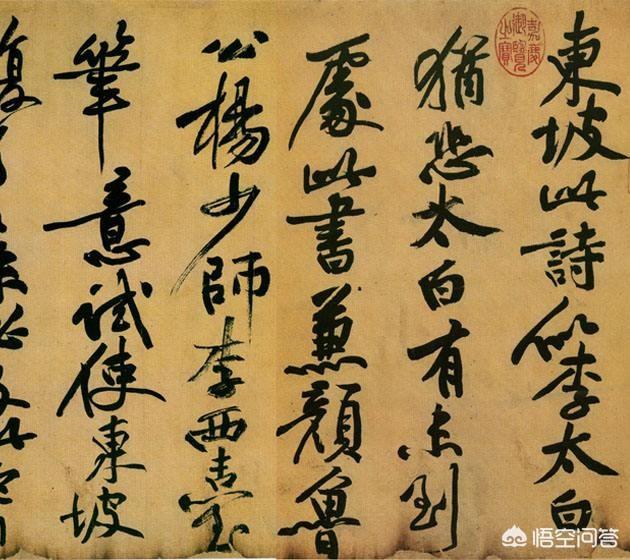 嘉慶御覽之寶
東坡此詩似李太白
猶恐太白有未到
處此書兼顏魯
公楊少師李西臺
筆意試使東坡
悟空问答